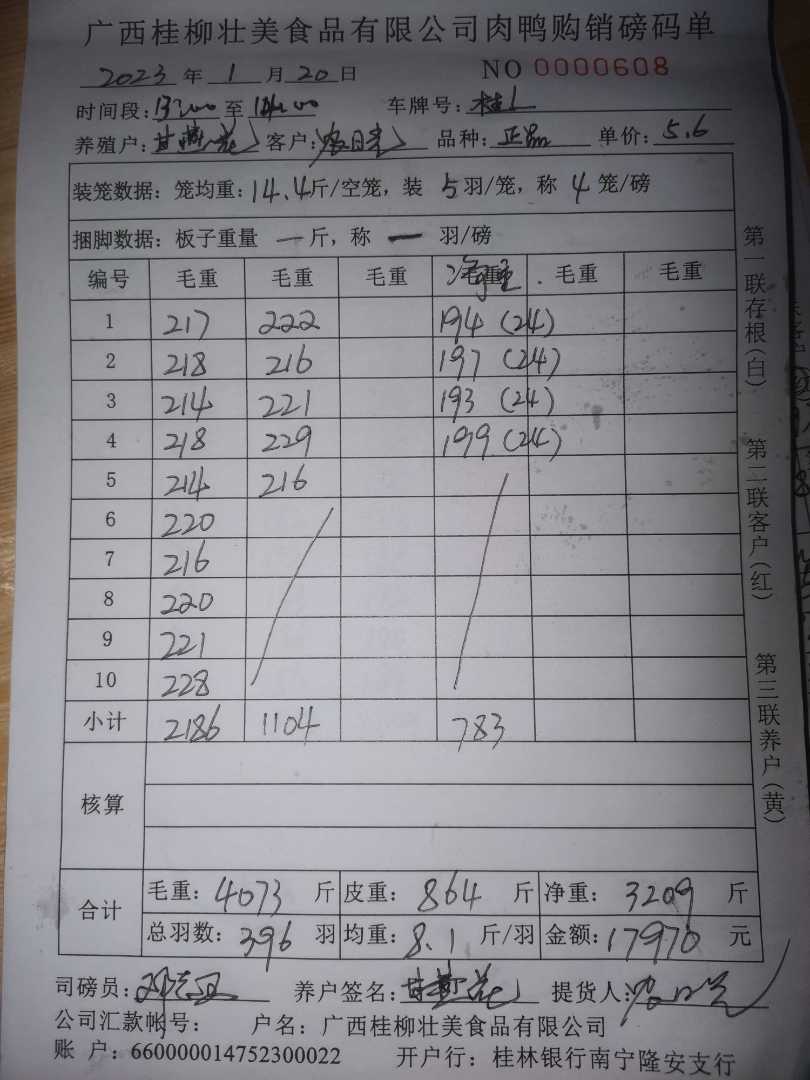 广西桂柳壮美食品有限公司肉鸭购销磅码单
2023 年 1 月 20 日 NO 0000608
时间段: 13:00 至 14:00 车牌号: 桂L
养殖户: 甘燕花 客户: 品种: 正品 单价: 5.6
装笼数据: 笼均重: 14.4斤/空笼, 装 5 羽/笼, 称 4 笼/磅
捆脚数据: 板子重量 一 斤, 称 一 羽/磅
编号 毛重 毛重 毛重 毛重 毛重 毛重
1 217 222 194 (24)
2 218 216 197 (24)
3 214 221 193 (24)
4 218 229 199 (24)
5 214 216
6 220
7 216
8 220
9 221
10 228
小计 2186 1104 783
核算
合计 毛重: 4073 斤 皮重: 864 斤 净重: 3209 斤
总羽数: 396 羽 均重: 8.1 斤/羽 金额: 17970 元
司磅员: 养户签名: 甘燕花 提货人:
公司汇款帐号: 户名: 广西桂柳壮美食品有限公司
账 户: 660000014752300022 开户行: 桂林银行南宁隆安支行
第一联存根(白) 第二联客户(红) 第三联养户(黄)